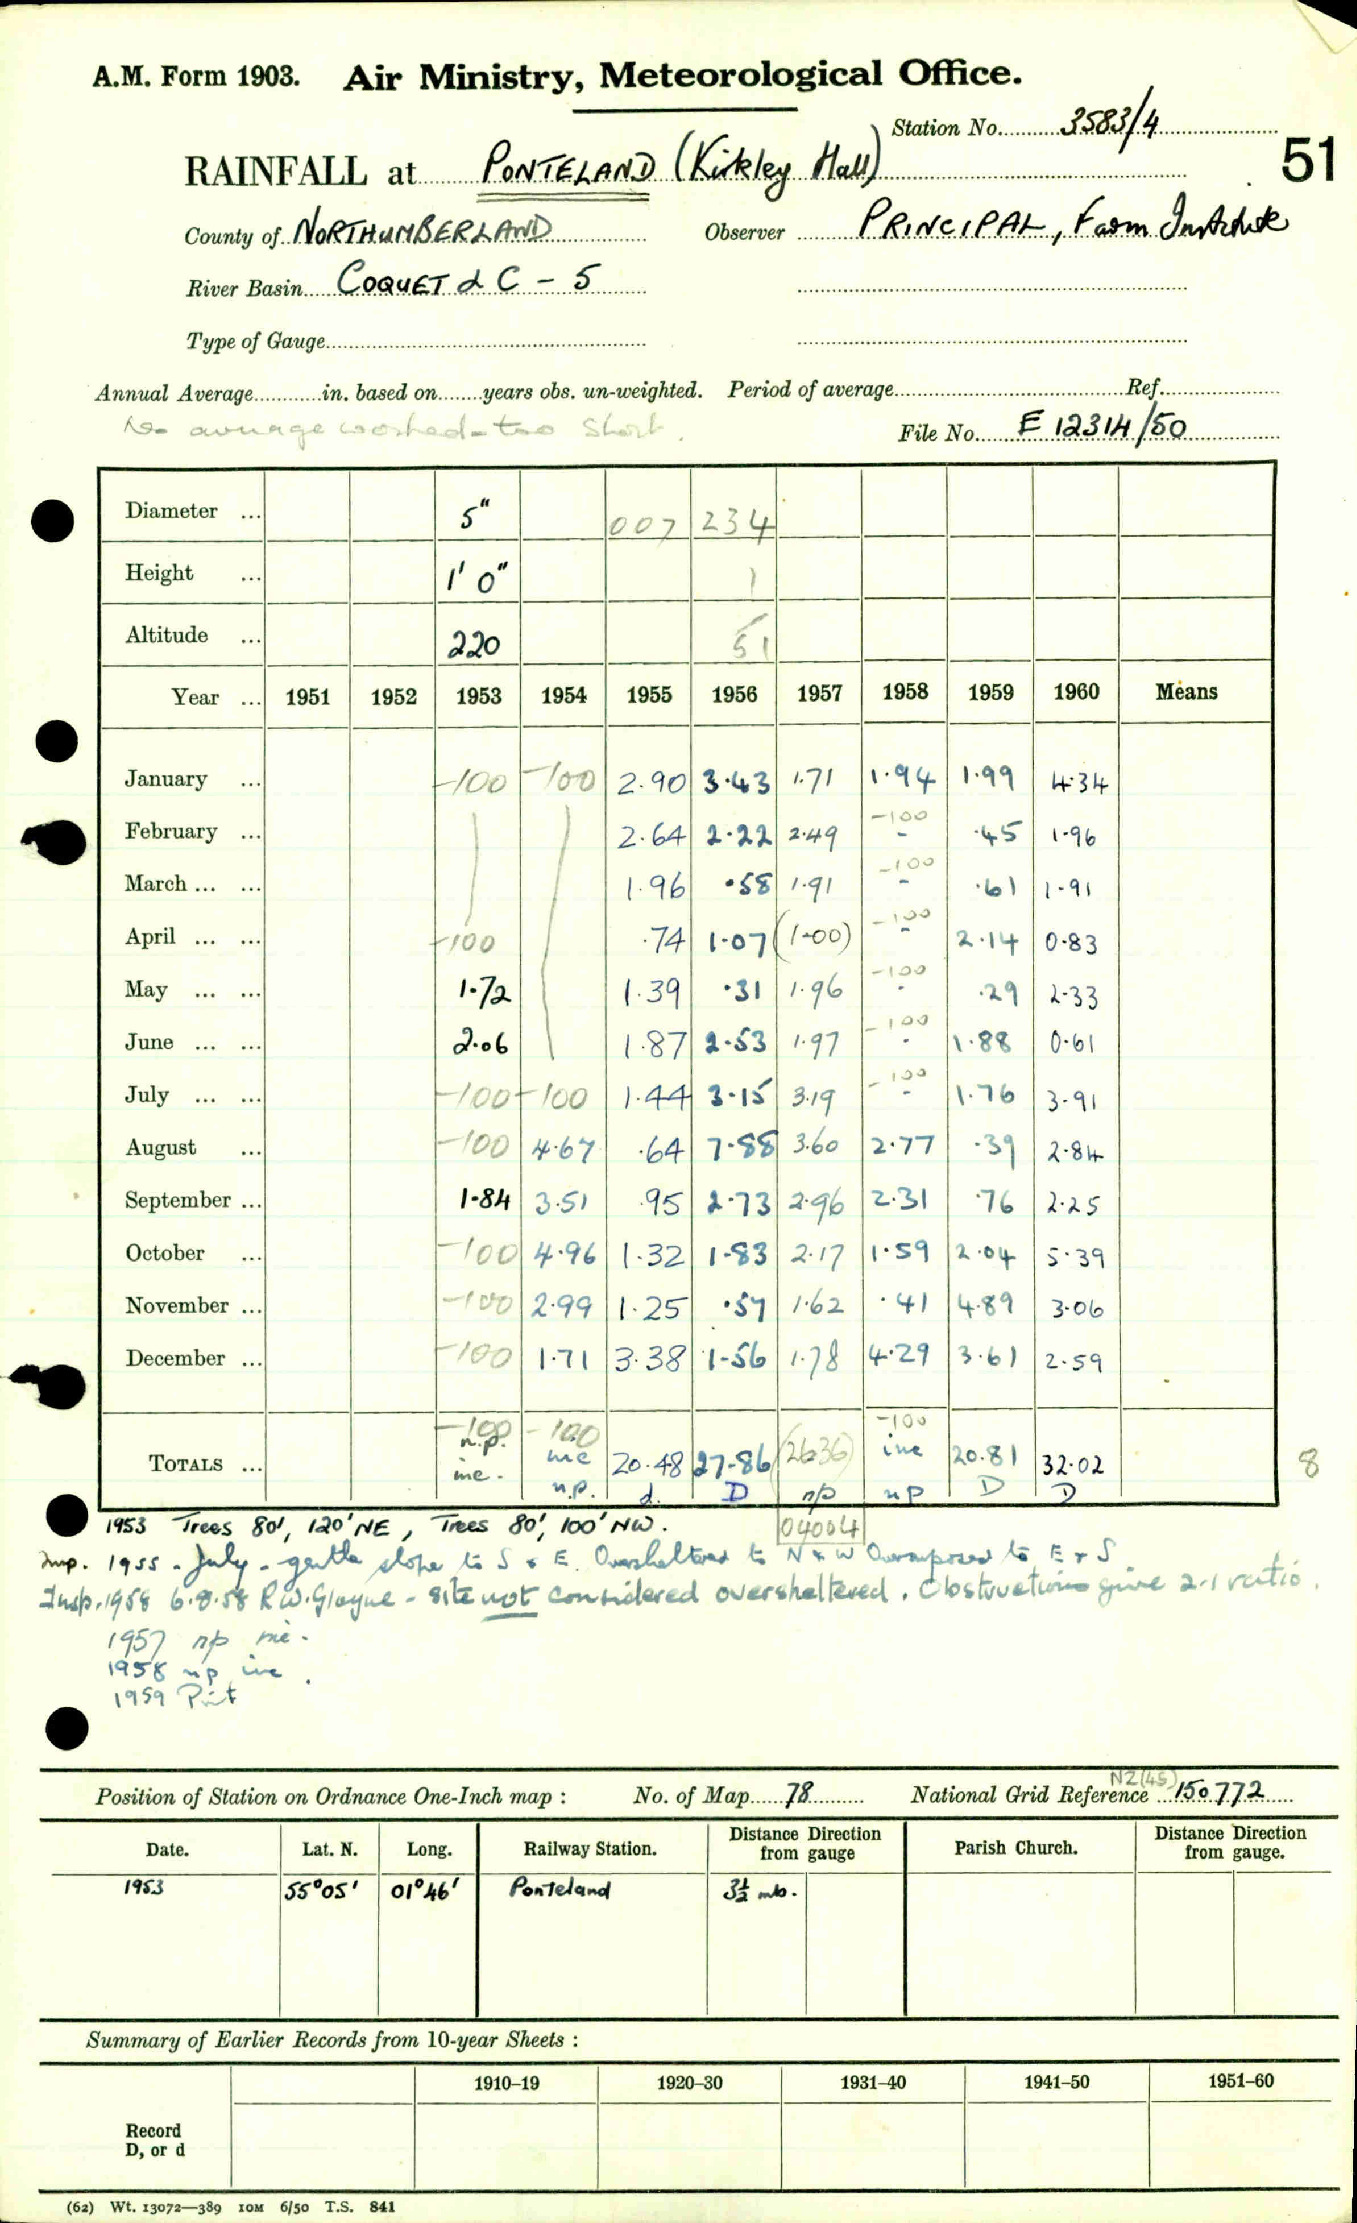 A.M. Form 1903. Air Ministry, Meteorological Office.
Station No. 3583/4
51
RAINFALL at PONTELAND (Kirkley Hall)
County of NORTHUMBERLAND Observer PRINCIPAL, Farm Institute
River Basin COQUET & C - 5
Type of Gauge
Annual Average in. based on years obs. un-weighted. Period of average Ref.
No average worked - too short.
File No. E 12314/50
Diameter ... 5" 007 234
Height ... 1' 0" 1
Altitude ... 220 51
Year ... 1951 1952 1953 1954 1955 1956 1957 1958 1959 1960 Means
January ... -100 -100 2.90 3.43 1.71 1.94 1.99 4.34
February ... 2.64 2.22 2.49 -100 - .45 1.96
March ... ... 1.96 .58 1.91 -100 - .61 1.91
April ... ... -100 .74 1.07 (1.00) -100 - 2.14 0.83
May ... ... 1.72 1.39 .31 1.96 -100 - .29 2.33
June ... ... 2.06 1.87 2.53 1.97 -100 - 1.88 0.61
July ... ... -100 -100 1.44 3.15 3.19 -100 - 1.76 3.91
August ... -100 4.67 .64 7.88 3.60 2.77 .39 2.84
September ... 1.84 3.51 .95 2.73 2.96 2.31 .76 2.25
October ... -100 4.96 1.32 1.83 2.17 1.59 2.04 5.39
November ... -100 2.99 1.25 .57 1.62 .41 4.89 3.06
December ... -100 1.71 3.38 1.56 1.78 4.29 3.61 2.59
-100 -100 -100
TOTALS ... n.p. inc. inc n.p. 20.48 d. 27.86 D (26.36) np inc np 20.81 D 32.02 D
8
04004
1953 Trees 80', 120' NE, Trees 80', 100' NW.
Insp. 1955 - July - gentle slope to S & E. Oversheltered to N & W Overexposed to E & S.
Insp. 1958 6.8.58 R.W. Gloyne - site not considered oversheltered. Obstructions give 2-1 ratio.
1957 np inc.
1958 np inc.
1959 Print
Position of Station on Ordnance One-Inch map : No. of Map 78 National Grid Reference NZ(45) 150772
Date. Lat. N. Long. Railway Station. Distance from gauge Direction Parish Church. Distance from gauge. Direction
1953 55°05' 01°46' Ponteland 3½ mls.
Summary of Earlier Records from 10-year Sheets :
1910–19 1920–30 1931–40 1941–50 1951–60
Record
D, or d
(62) Wt. 13072—389 10M 6/50 T.S. 841